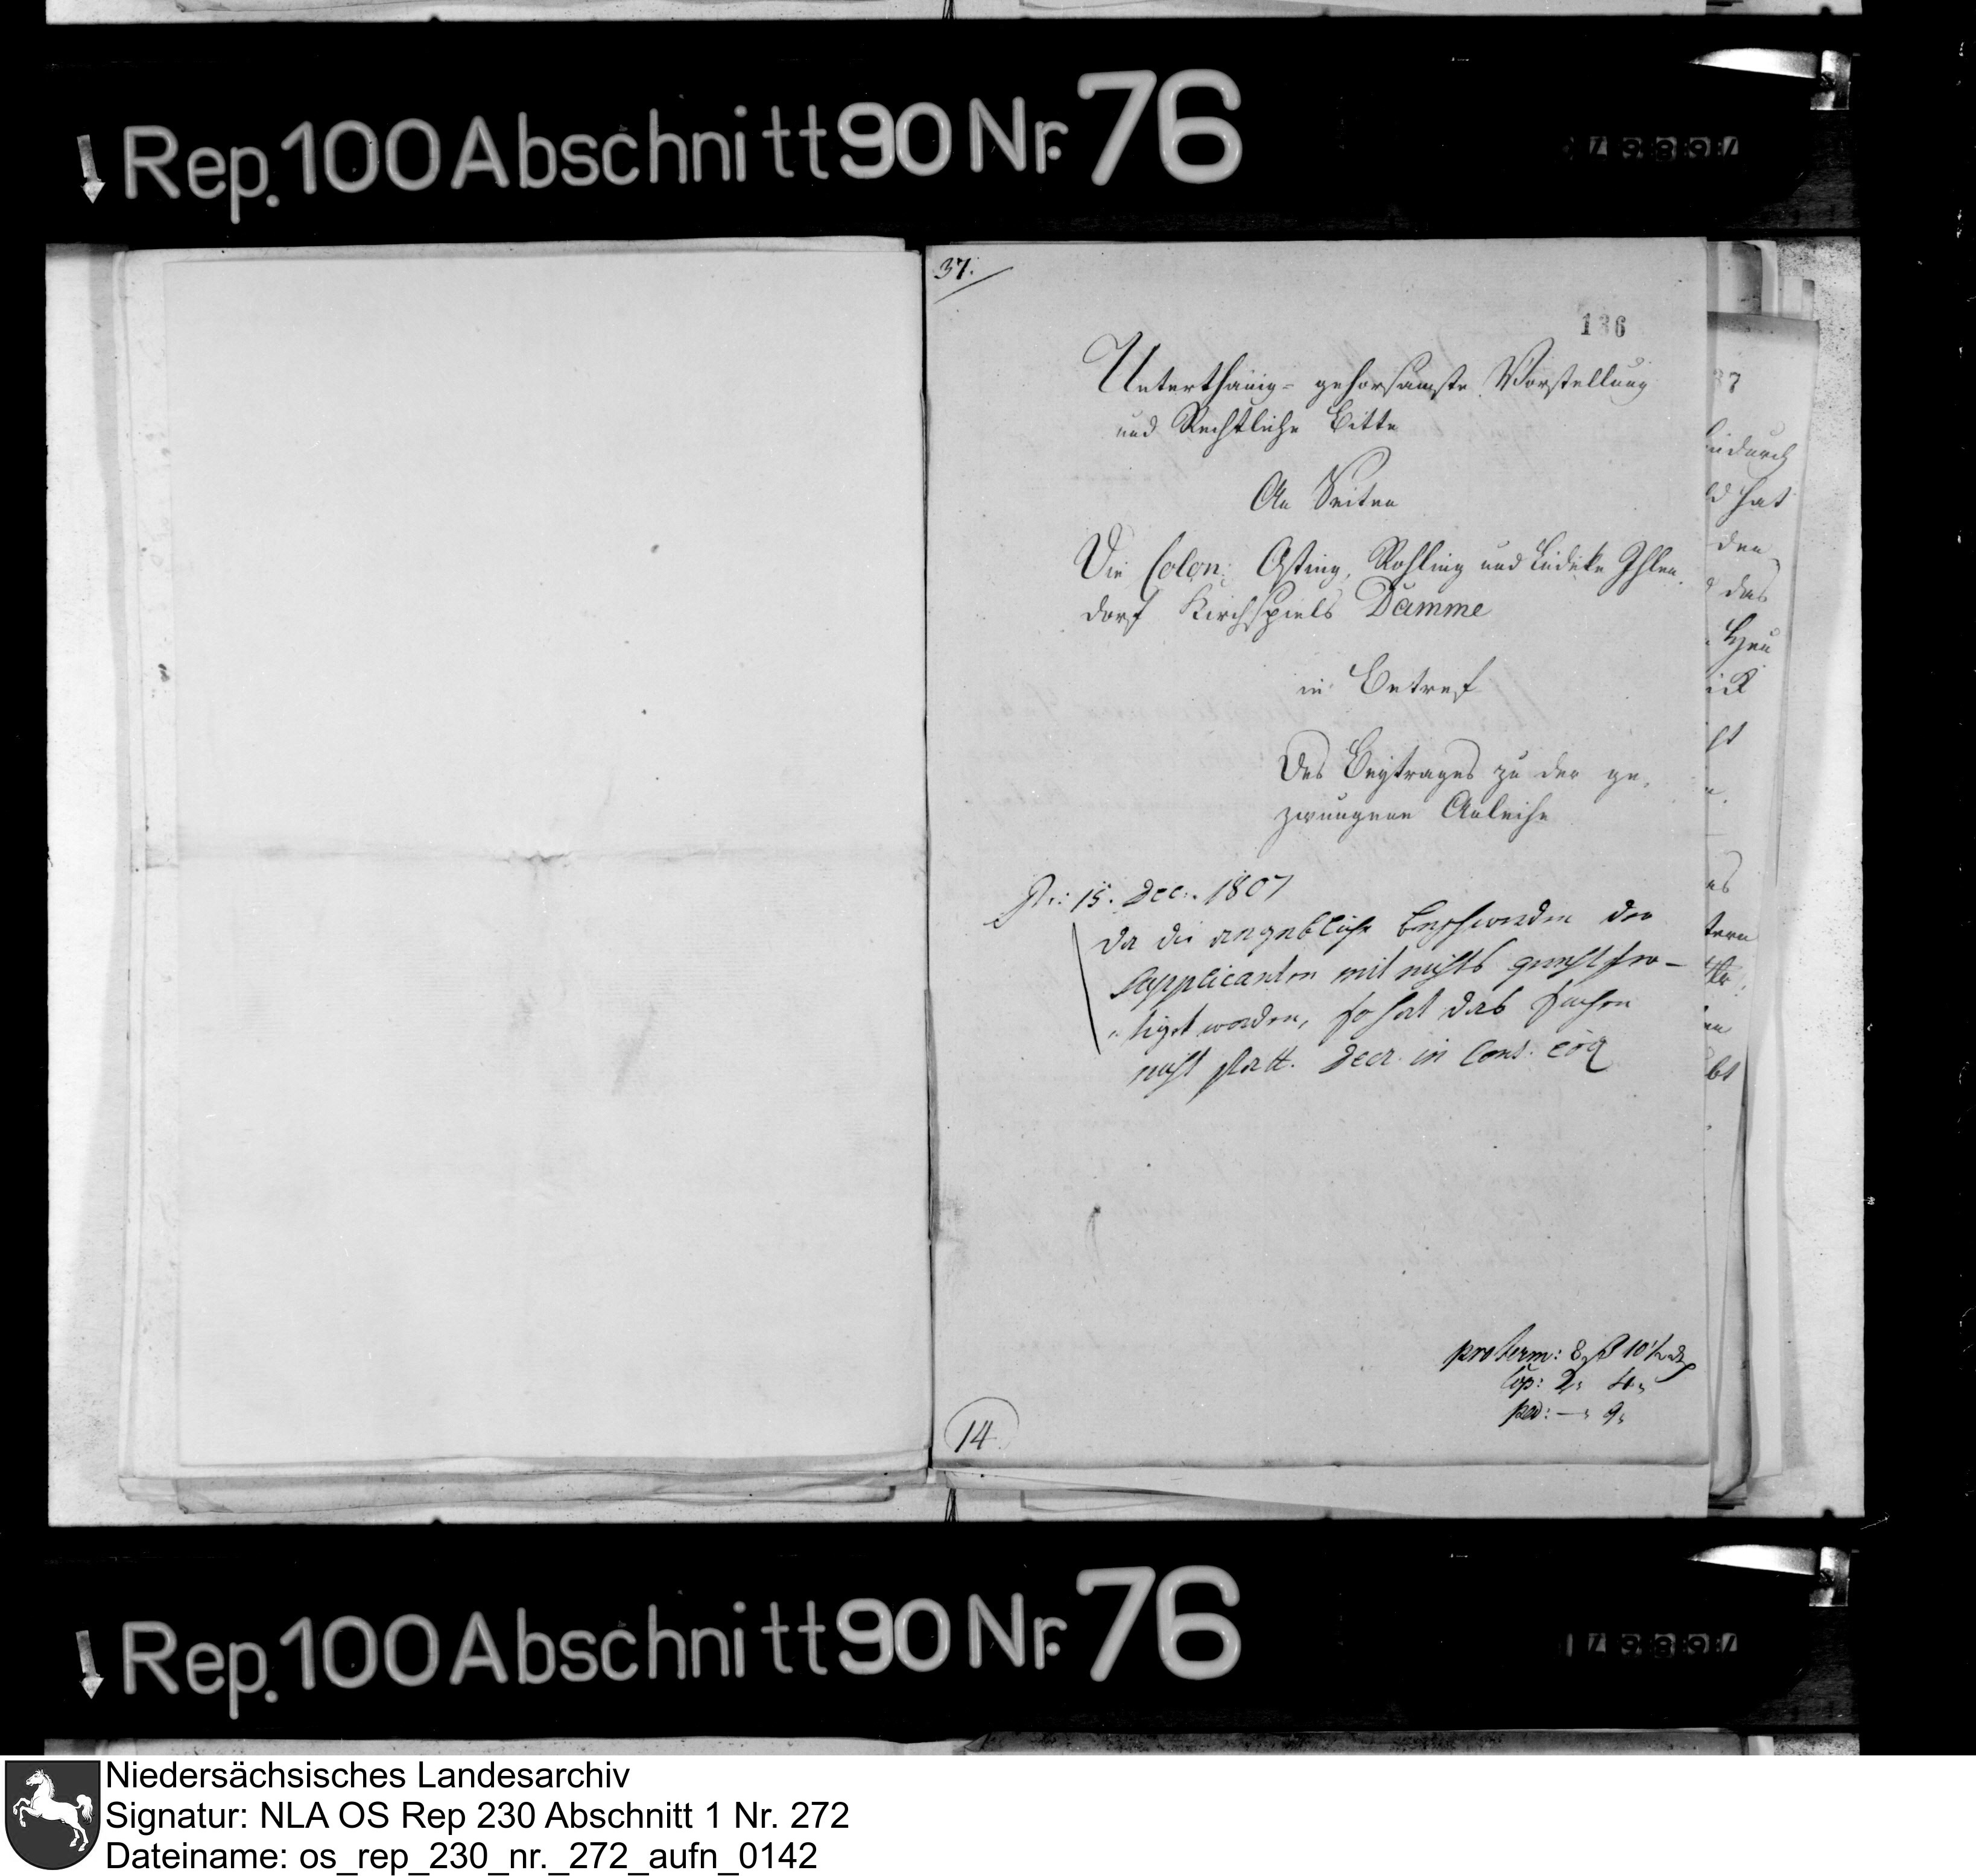 Rep. 100 Abschnitt 90 Nr. 76
37.
136
Unterthänig- gehorsamste Vorstellung
und Rechtliche Bitte
An Seiten
Die Colon: Osting, Rohling und Lüdeke Ihlen
dorf Kirchspiels Damme
in Betref
Des Beytrages zu der ge,
zwungene Anleihe
15. Dec: 1807
Da die angebliche Beschwerden der
Supplicanten mit nichts gerechtfer-
tiget worden, so hat das Suchen
nicht statt. Decr. in Cons.
pro term: 8 ß 10 1/2
Cop: 2, 4,
per: — 9,
14
87
durch
hat
den
das
Rep. 100 Abschnitt 90 Nr. 76
Niedersächsisches Landesarchiv
Signatur: NLA OS Rep 230 Abschnitt 1 Nr. 272
Dateiname: os_rep_230_nr._272_aufn_0142